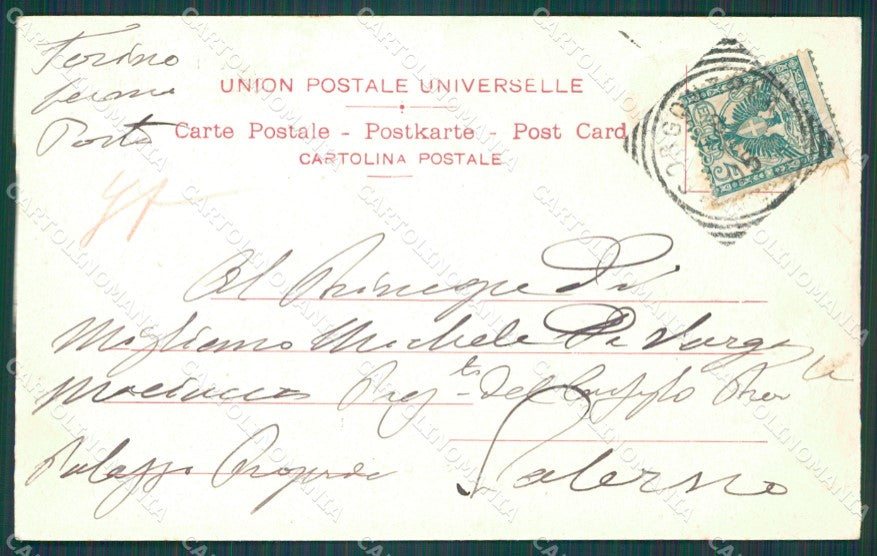 Torino
ferma
Posta
UNION POSTALE UNIVERSELLE
Carte Postale - Postkarte - Post Card
CARTOLINA POSTALE
Al Principe Di
Migliano Michele Di Vargas
Machucca Preg. te del Consiglo Prov le
Palazzo Proprio
Salerno
CARTOLINOMANIA